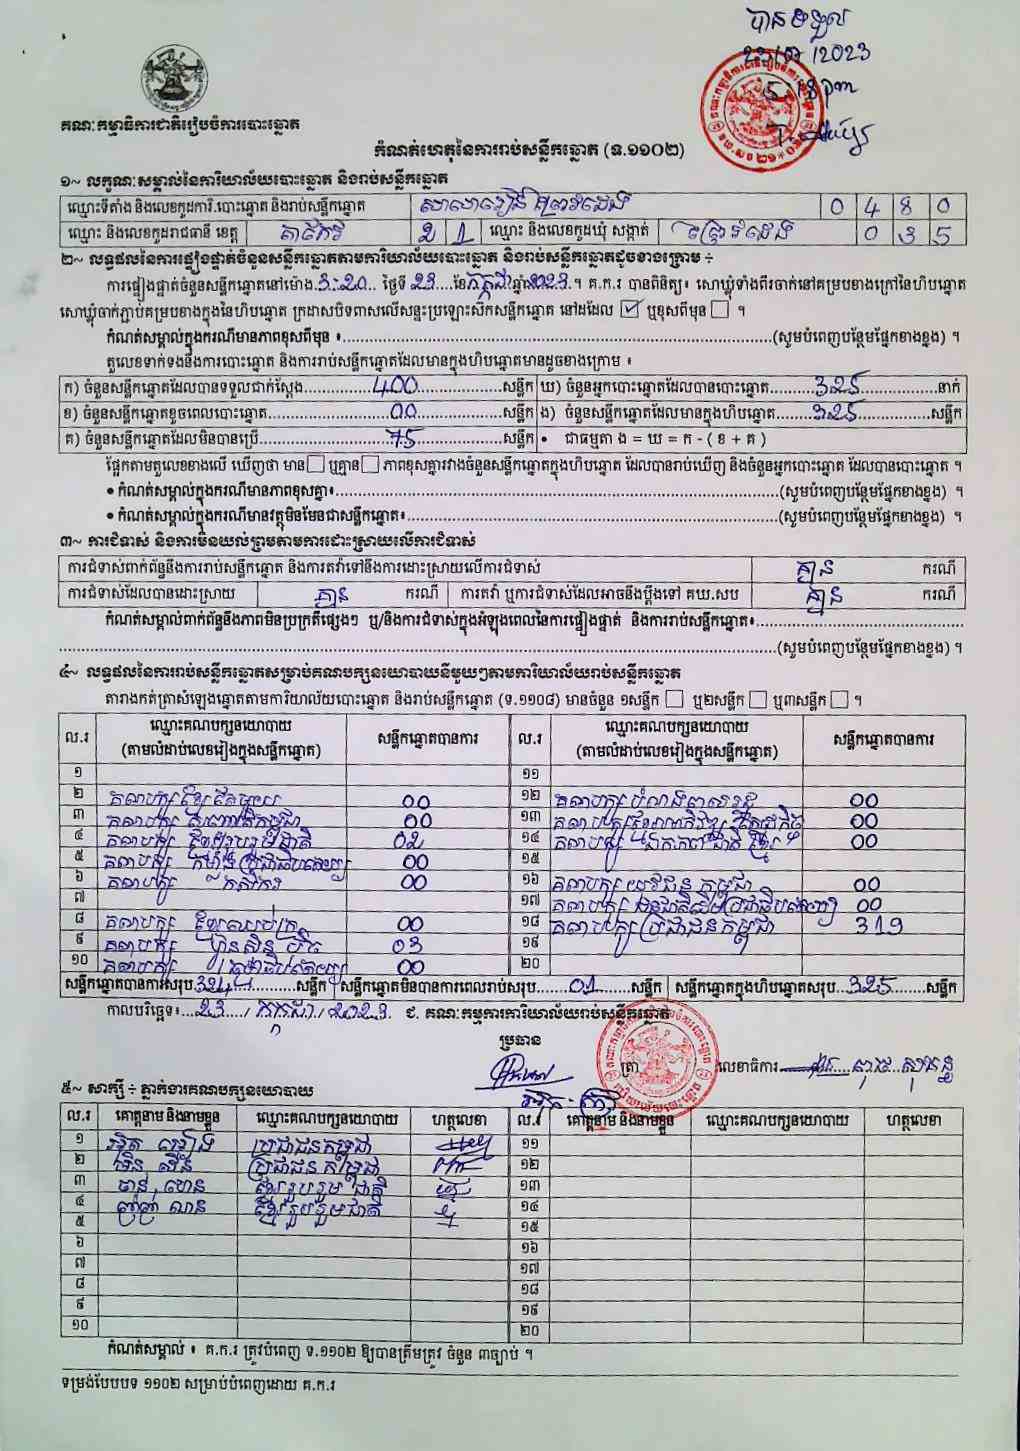 បានទទួល
23 2023
5 pm
គណៈកម្មាធិការជាតិរៀបចំការបោះឆ្នោត
កំណត់ហេតុនៃការរាប់សន្លឹកឆ្នោត (ទ.១១០២)
១~ លក្ខណៈសម្គាល់នៃការិយាល័យបោះឆ្នោត និងរាប់សន្លឹកឆ្នោត
ឈ្មោះទីតាំង និងលេខកូដការិ.បោះឆ្នោត និងរាប់សន្លឹកឆ្នោត 0 4 8 0
ឈ្មោះ និងលេខកូដរាជធានី ខេត្ត តាកែវ 2 1 ឈ្មោះ និងលេខកូដឃុំ សង្កាត់ 0 3 5
២~ លទ្ធផលនៃការផ្ទៀងផ្ទាត់ចំនួនសន្លឹកឆ្នោតតាមការិយាល័យបោះឆ្នោត និងរាប់សន្លឹកឆ្នោតដូចខាងក្រោម ÷
ការផ្ទៀងផ្ទាត់ចំនួនសន្លឹកឆ្នោតនៅម៉ោង 3:20 ថ្ងៃទី 23 ខែ កក្កដា ឆ្នាំ 2023 ។ គ.ក.រ បានពិនិត្យ៖ សោឃ្លុំទាំងពីរចាក់នៅគម្របខាងក្រៅនៃហិបឆ្នោត
សោឃ្លុំចាក់ភ្ជាប់គម្របខាងក្នុងនៃហិបឆ្នោត ក្រដាសបិទពាសលើសន្ទះប្រឡោះស៊កសន្លឹកឆ្នោត នៅដដែល ☑ ឬខុសពីមុន ☐ ។
កំណត់សម្គាល់ក្នុងករណីមានភាពខុសពីមុន ៖ (សូមបំពេញបន្ថែមផ្នែកខាងខ្នង) ។
តួលេខទាក់ទងនឹងការបោះឆ្នោត និងការរាប់សន្លឹកឆ្នោតដែលមានក្នុងហិបឆ្នោតមានដូចខាងក្រោម ៖
ក) ចំនួនសន្លឹកឆ្នោតដែលបានទទួលជាក់ស្តែង 400 សន្លឹក ឃ) ចំនួនអ្នកបោះឆ្នោតដែលបានបោះឆ្នោត 325 នាក់
ខ) ចំនួនសន្លឹកឆ្នោតខូចពេលបោះឆ្នោត 00 សន្លឹក ង) ចំនួនសន្លឹកឆ្នោតដែលមានក្នុងហិបឆ្នោត 325 សន្លឹក
គ) ចំនួនសន្លឹកឆ្នោតដែលមិនបានប្រើ 75 សន្លឹក • ជាធម្មតា ង = ឃ = ក - ( ខ + គ )
ផ្អែកតាមតួលេខខាងលើ ឃើញថា មាន ☐ ឬគ្មាន ☐ ភាពខុសគ្នារវាងចំនួនសន្លឹកឆ្នោតក្នុងហិបឆ្នោត ដែលបានរាប់ឃើញ និងចំនួនអ្នកបោះឆ្នោត ដែលបានបោះឆ្នោត ។
• កំណត់សម្គាល់ក្នុងករណីមានភាពខុសគ្នា៖ (សូមបំពេញបន្ថែមផ្នែកខាងខ្នង) ។
• កំណត់សម្គាល់ក្នុងករណីមានវត្ថុមិនមែនជាសន្លឹកឆ្នោត៖ (សូមបំពេញបន្ថែមផ្នែកខាងខ្នង) ។
៣~ ការជំទាស់ និងការមិនយល់ព្រមតាមការដោះស្រាយលើការជំទាស់
ការជំទាស់ពាក់ព័ន្ធនឹងការរាប់សន្លឹកឆ្នោត និងការតវ៉ាទៅនឹងការដោះស្រាយលើការជំទាស់ គ្មាន ករណី
ការជំទាស់ដែលបានដោះស្រាយ គ្មាន ករណី ការតវ៉ា ឬការជំទាស់ដែលអាចនឹងប្តឹងទៅ គឃ.សប គ្មាន ករណី
កំណត់សម្គាល់ពាក់ព័ន្ធនឹងភាពមិនប្រក្រតីផ្សេងៗ ឬ/និងការជំទាស់ក្នុងអំឡុងពេលនៃការផ្ទៀងផ្ទាត់ និងការរាប់សន្លឹកឆ្នោត៖
(សូមបំពេញបន្ថែមផ្នែកខាងខ្នង) ។
៤~ លទ្ធផលនៃការរាប់សន្លឹកឆ្នោតសម្រាប់គណបក្សនយោបាយនីមួយៗតាមការិយាល័យរាប់សន្លឹកឆ្នោត
តារាងកត់ត្រាសំឡេងឆ្នោតតាមការិយាល័យបោះឆ្នោត និងរាប់សន្លឹកឆ្នោត (ទ.១១០៨) មានចំនួន ១សន្លឹក ☐ ឬ២សន្លឹក ☐ ឬ៣សន្លឹក ☐ ។
ល.រ ឈ្មោះគណបក្សនយោបាយ (តាមលំដាប់លេខរៀងក្នុងសន្លឹកឆ្នោត) សន្លឹកឆ្នោតបានការ ល.រ ឈ្មោះគណបក្សនយោបាយ (តាមលំដាប់លេខរៀងក្នុងសន្លឹកឆ្នោត) សន្លឹកឆ្នោតបានការ
១ ១១
២ គណបក្ស ខ្មែរតែមួយ 00 ១២ គណបក្ស 00
៣ គណបក្ស 00 ១៣ គណបក្ស 00
៤ គណបក្ស ខ្មែររួបរួមជាតិ 02 ១៤ គណបក្ស ឯកភាពជាតិខ្មែរ 00
៥ គណបក្ស កម្លាំងប្រជាធិបតេយ្យ 00 ១៥
៦ គណបក្ស កសិករ 00 ១៦ គណបក្ស យុវជនកម្ពុជា 00
៧ ១៧ គណបក្ស 00
៨ គណបក្ស 00 ១៨ គណបក្សប្រជាជនកម្ពុជា 319
៩ គណបក្ស ហ៊្វុនស៊ិនប៉ិច 03 ១៩
១០ គណបក្ស 00 ២០
សន្លឹកឆ្នោតបានការសរុប 324 សន្លឹក សន្លឹកឆ្នោតមិនបានការពេលរាប់សរុប 01 សន្លឹក សន្លឹកឆ្នោតក្នុងហិបឆ្នោតសរុប 325 សន្លឹក
កាលបរិច្ឆេទ៖ 23 / កក្កដា / 2023 ជ. គណៈកម្មការការិយាល័យរាប់សន្លឹកឆ្នោត
ប្រធាន
ត្រា លេខាធិការ
៥~ សាក្សី ÷ ភ្នាក់ងារគណបក្សនយោបាយ
ល.រ គោត្តនាម និងនាមខ្លួន ឈ្មោះគណបក្សនយោបាយ ហត្ថលេខា ល.រ គោត្តនាម និងនាមខ្លួន ឈ្មោះគណបក្សនយោបាយ ហត្ថលេខា
១ ប្រជាជនកម្ពុជា ១១
២ ប្រជាជនកម្ពុជា ១២
៣ ចាន់ ហេន ខ្មែររួបរួមជាតិ ១៣
៤ ខ្មែររួបរួមជាតិ ១៤
៥ ១៥
៦ ១៦
៧ ១៧
៨ ១៨
៩ ១៩
១០ ២០
កំណត់សម្គាល់ ៖ គ.ក.រ ត្រូវបំពេញ ទ.១១០២ ឱ្យបានត្រឹមត្រូវ ចំនួន ៣ច្បាប់ ។
ទម្រង់បែបបទ ១១០២ សម្រាប់បំពេញដោយ គ.ក.រ